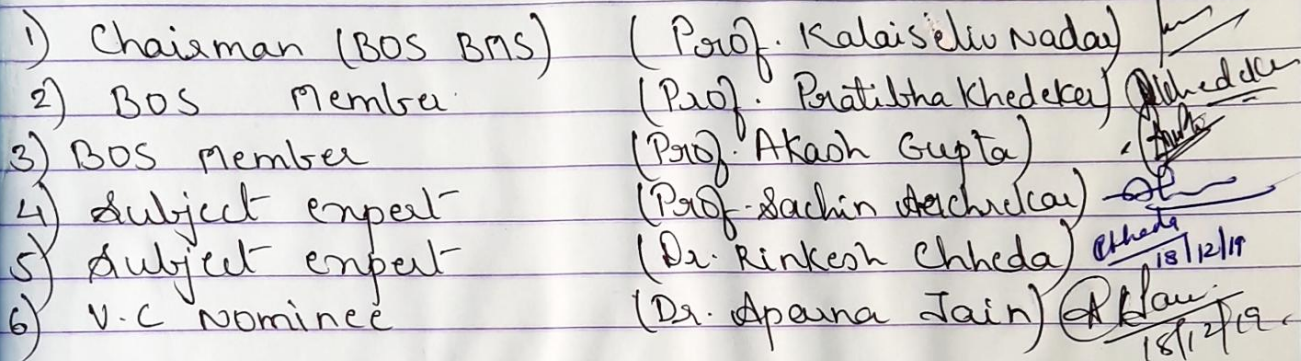 1) Chairman (BOS BMS) (Prof. Kalaiseliv Nadar)
2) BOS Member (Prof. Pratibha Khedekar) Khedekar
3) BOS Member (Prof. Akash Gupta)
4) Subject expert (Prof. Sachin)
5) Subject expert (Dr. Rinkesh Chheda) Chheda 18/12/19
6) V.C Nominee (Dr. Aparna Jain) 18/12/19